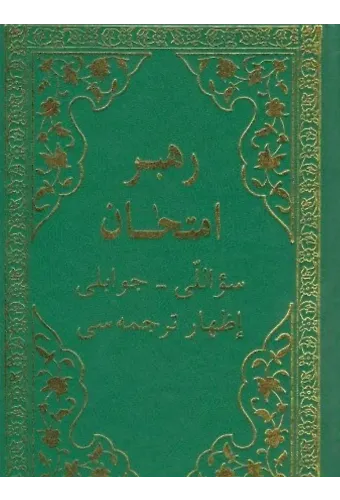 رهبر
امتحان
سؤاللى - جوابلى
إظهار ترجمه سى